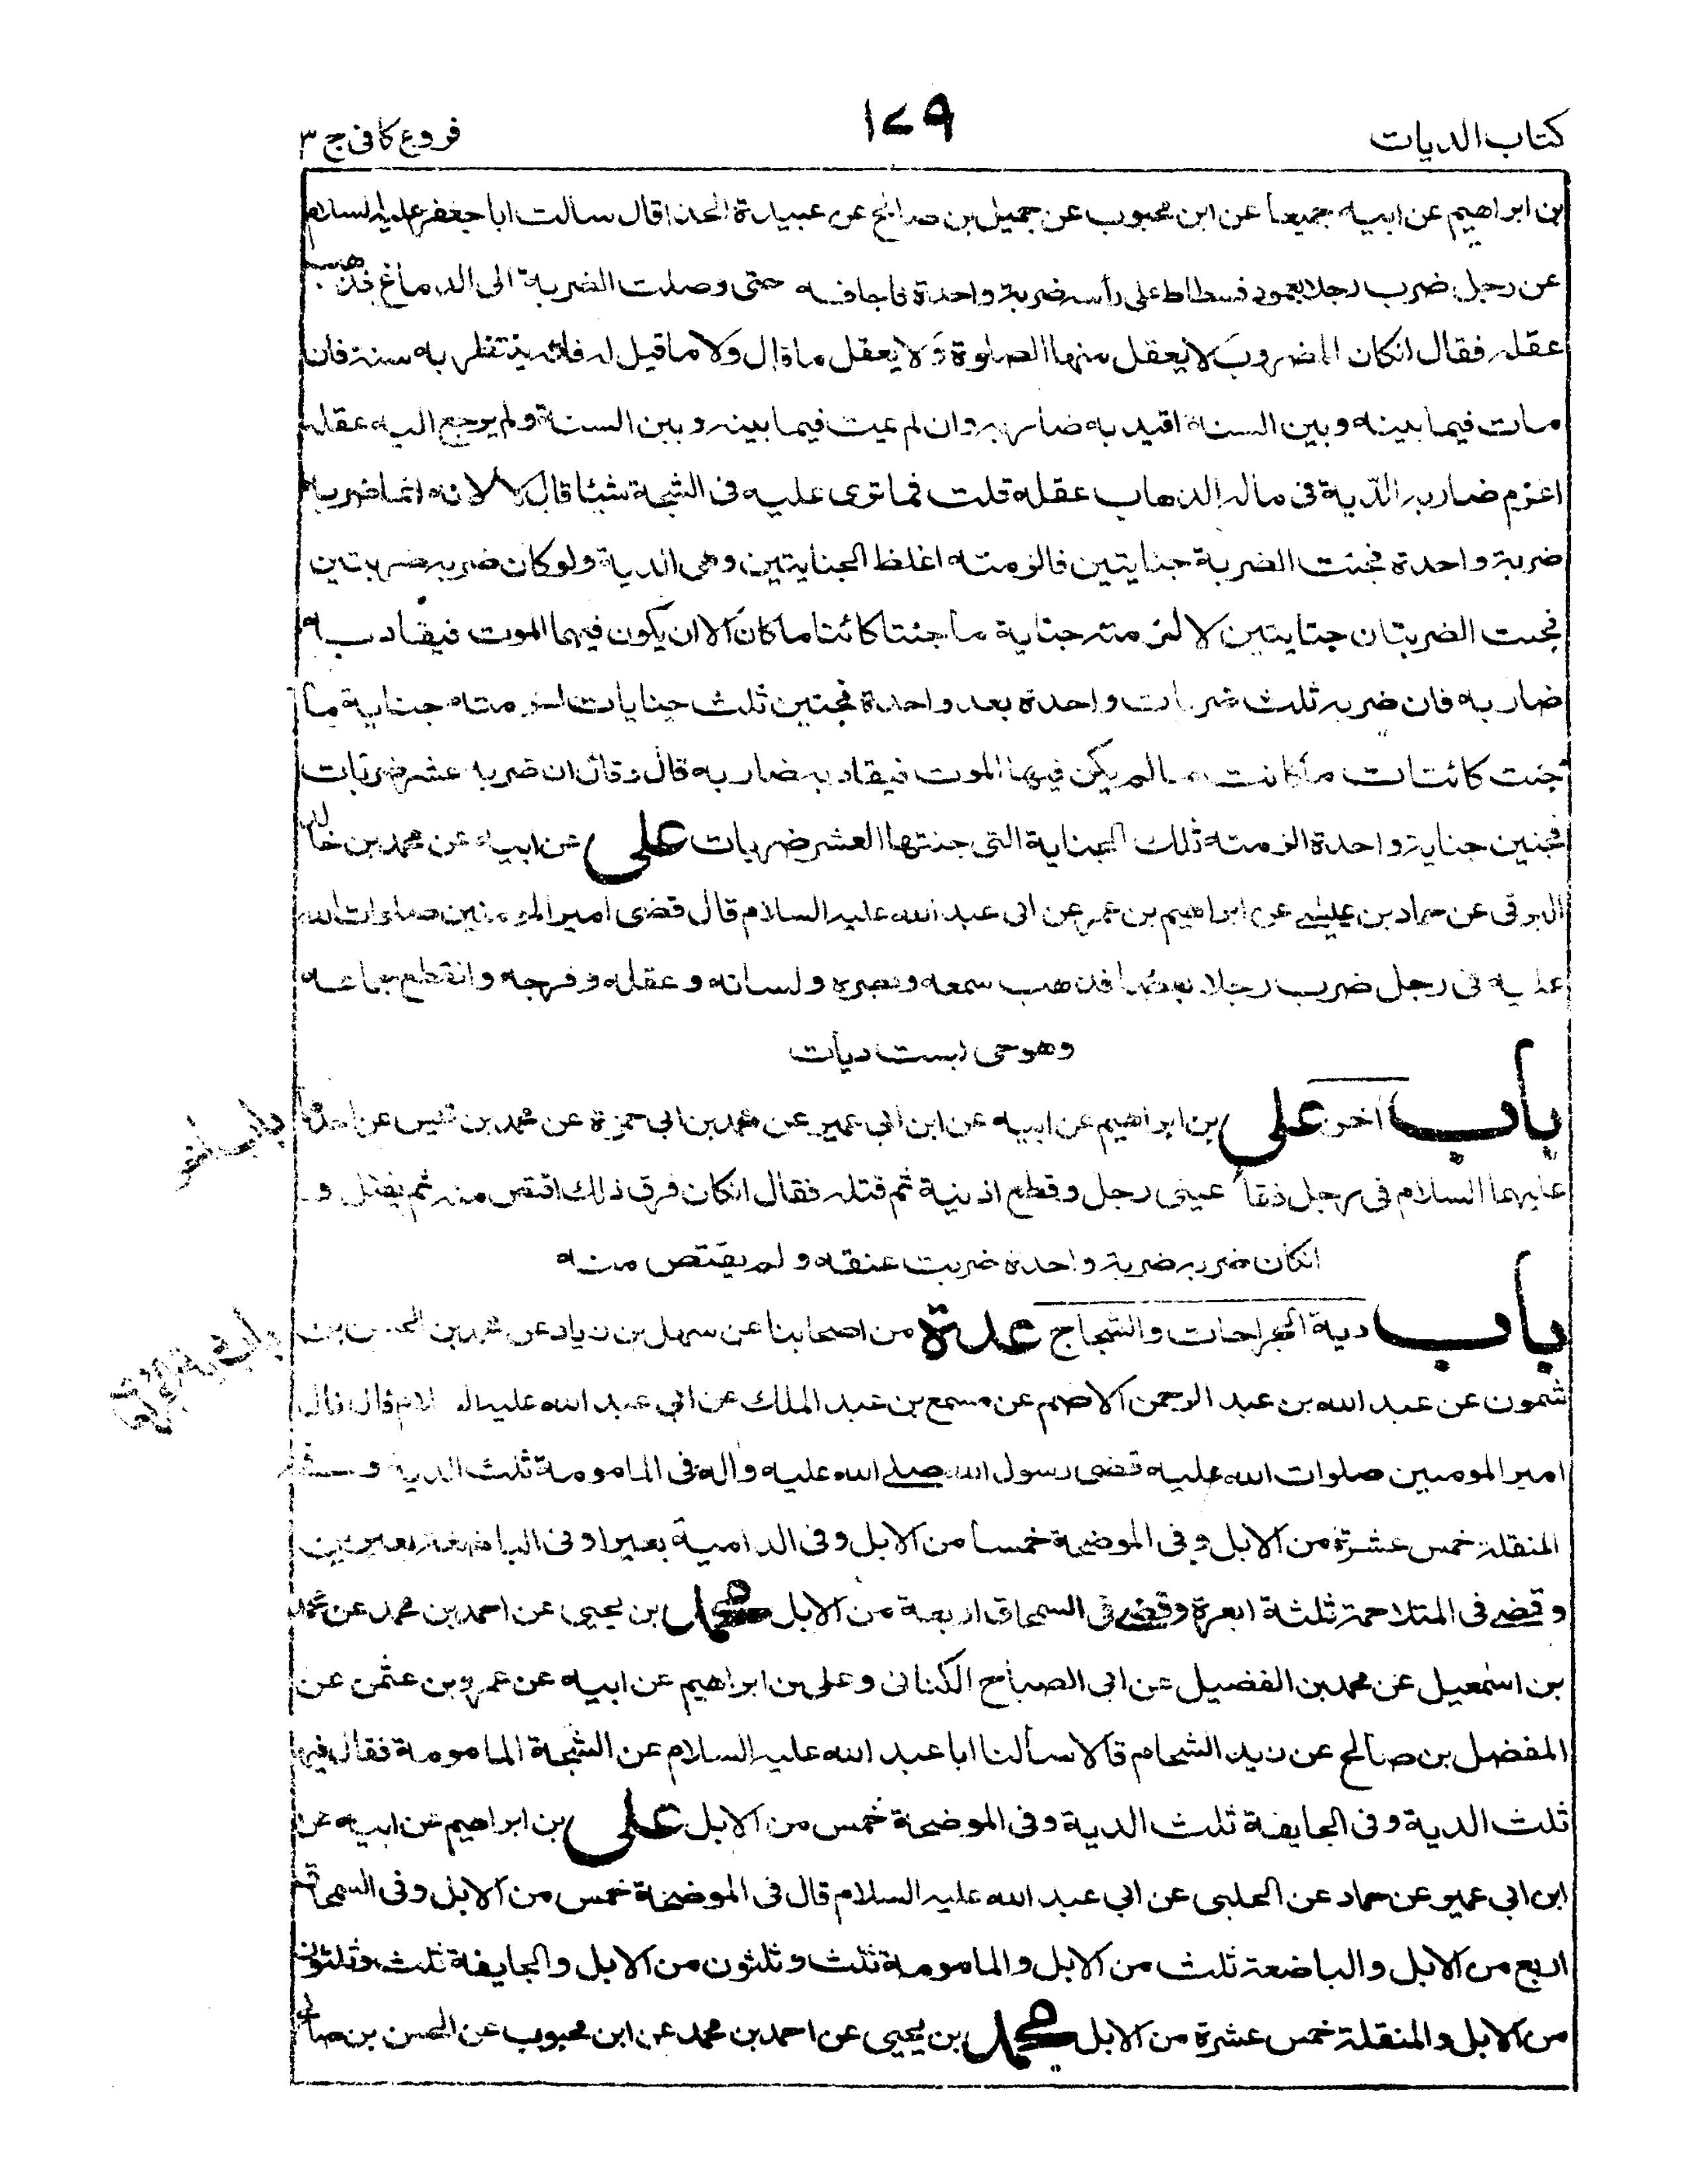 كتاب الديات
١٧٩
فروع كافى ج ٣
بن ابراهيم عن ابيه جميعا عن ابن محبوب عن جميل بن صالح عن عبيدة الحذا قال سالت ابا جعفر عليه السلام
عن رجل ضرب رجلا بعمود فسطاط على رأسه ضربة واحدة فاجافه حتى وصلت الضربة الى الدماغ فذهب
عقله فقال انكان المضروب لا يعقل منها الصلوة ولا يعقل ما قال ولا ما قيل له فانه ينتظر به سنة فان
مات فيما بينه وبين السنة اقيد به ضاربه وان لم يمت فيما بينه وبين السنة ولم يرجع اليه عقله
اغرم ضاربه الدية فى ماله لذهاب عقله قلت فما ترى عليه فى الشجة شيئا قال لا لانه انما ضربه
ضربة واحدة فجنت الضربة جنايتين فالزمته اغلظ الجنايتين وهى الدية ولو كان ضربه ضربتين
فجنت الضربتان جنايتين لالزمته جناية ما جنتا كائنا ما كان الا ان يكون فيهما الموت فيقاد به
ضاربه فان ضربه ثلث ضربات واحدة بعد واحدة فجنين ثلث جنايات لزمته جناية ما
جنت كائنات ما كانت ما لم يكن فيها الموت فيقاد به ضاربه قال وقال ان ضربه عشر ضربات
فجنين جناية واحدة الزمته تلك الجناية التى جنتها العشر ضربات على عن ابيه عن محمد بن خالد
البرقى عن حماد بن عيسى عن ابراهيم بن عمر عن ابى عبد الله عليه السلام قال قضى امير المومنين صلوات الله
عليه فى رجل ضرب رجلا بعصا فذهب سمعه وبصره ولسانه وعقله وفرجه وانقطع جماعه
وهو حى بست ديات
باب اخر على بن ابراهيم عن ابيه عن ابن ابي عمير عن محمد بن ابي حمزة عن محمد بن قيس عن احدهما
باب آخر
عليهما السلام فى رجل فقأ عينى رجل وقطع اذنيه ثم قتله فقال انكان فرق ذلك اقتص منه ثم يقتل و
انكان ضربه ضربة واحدة ضربت عنقه ولم يقتص منه
باب دية الجراحات والشجاج عدة من اصحابنا عن سهل بن زياد عن محمد بن الحسن بن
شمون عن عبد الله بن عبد الرحمن الاصم عن مسمع بن عبد الملك عن ابي عبد الله عليه السلام قال قال
امير المومنين صلوات الله عليه قضى رسول الله صلى الله عليه واله فى المامومة ثلث الدية و
المنقلة خمس عشرة من الابل وفى الموضحة خمسا من الابل وفى الدامية بعيرا وفى الباضعة بعيرين
وقضى فى المتلاحمة ثلثة ابعرة وقضى فى السمحاق اربعة من الابل محمد بن يحيى عن احمد بن محمد عن محمد
بن اسمعيل عن محمد بن الفضيل عن ابى الصباح الكنانى وعلى بن ابراهيم عن ابيه عن عمرو بن عثمن عن
المفضل بن صالح عن زيد الشحام قالا سألنا ابا عبد الله عليه السلام عن الشجة المامومة فقال فيها
ثلث الدية وفى الجايفة ثلث الدية وفى الموضحة خمس من الابل على بن ابراهيم عن ابيه عن
ابن ابي عمير عن حماد عن الحلبى عن ابي عبد الله عليه السلام قال فى الموضحة خمس من الابل وفى السمحاق
اربع من الابل والباضعة ثلث من الابل والمامومة ثلث وثلثون من الابل والجايفة ثلث وثلثون
من الابل والمنقلة خمس عشرة من الابل محمد بن يحيى عن احمد بن محمد عن ابن محبوب عن الحسن بن صالح